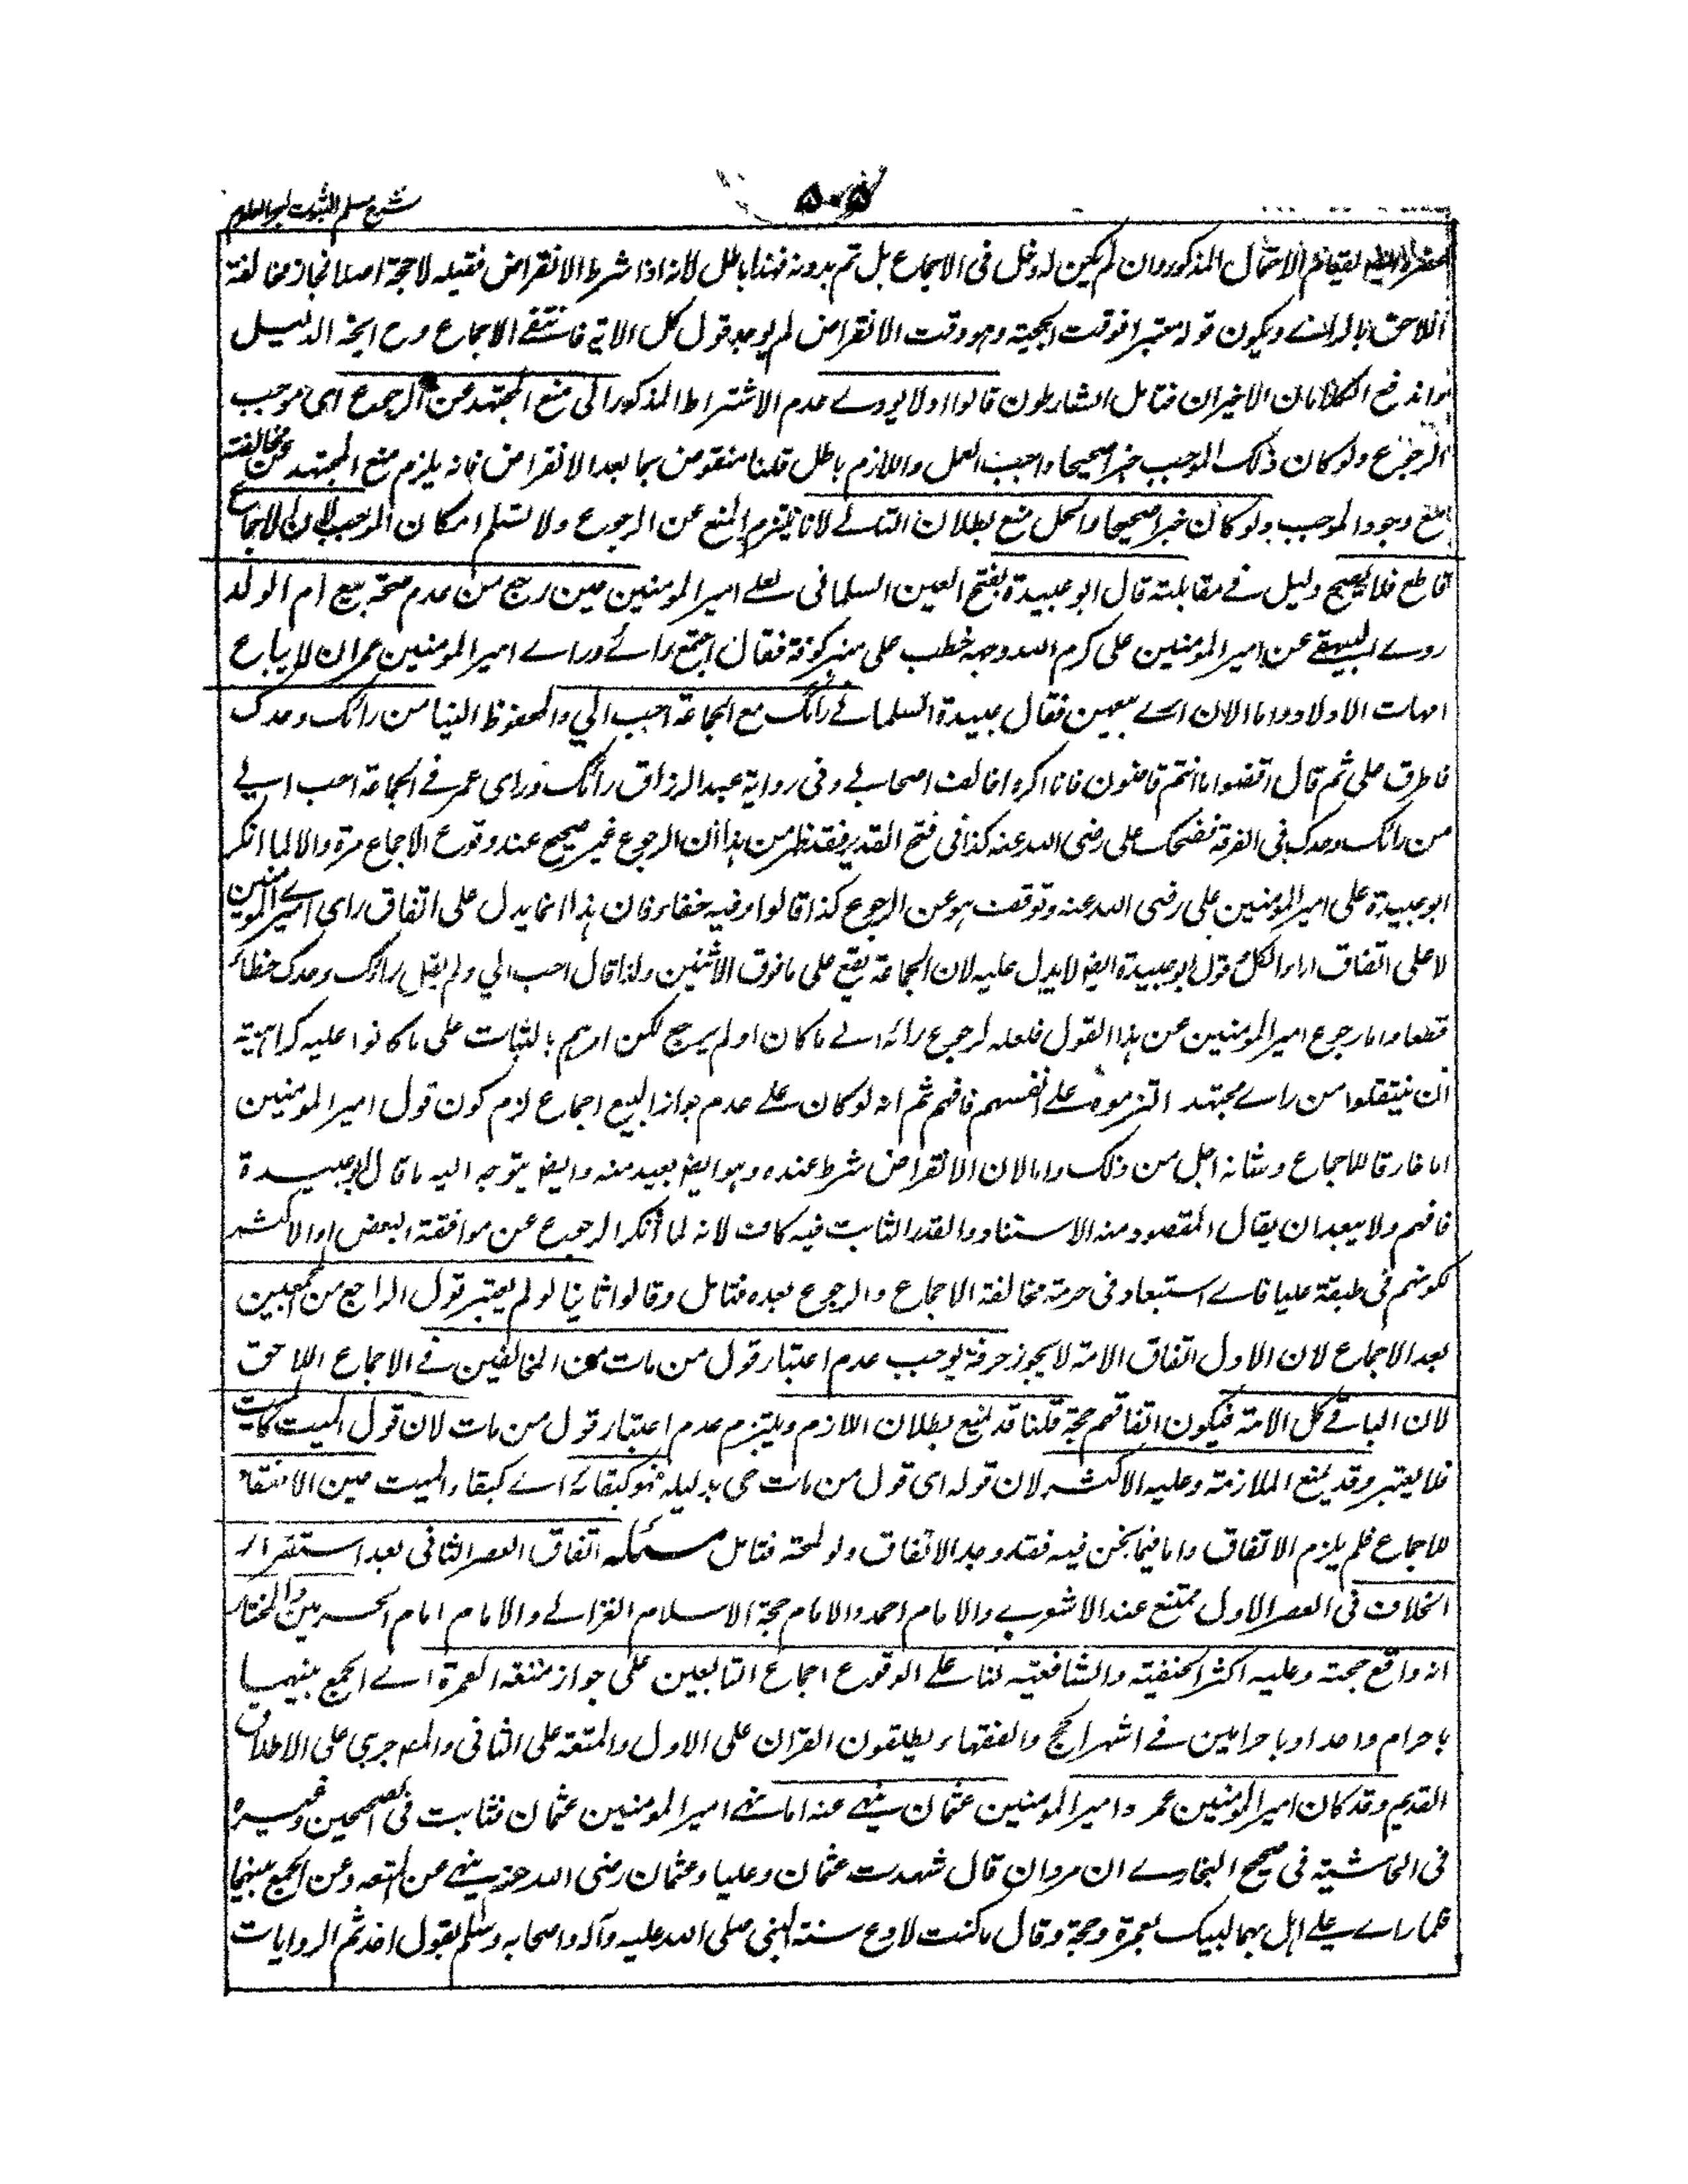 شرح مسلم الثبوت لبحر العلوم
٥٠٥
لقيام الاحتمال المذكور وان لم يكن له دخل فى الاجماع بل تم بدونه فهذا باطل لانه اذا شرط الانقراض فقبله لا حجة اصلا فجاز مخالفة
اللاحق بالراے ويكون قوله معتبرا فوقت الحجية وهو وقت الانقراض لم يوجد قول كل الامة فانتفے الاجماع وح ايضا الدليل
واندفع الكلامان الاخيران فتامل الشارطون قالوا اولا يودے عدم الاشتراط المذكور الى منع المجتهد عن الرجوع اى موجب
الرجوع ولو كان ذلك الموجب خبرا صحيحا واجب العمل واللازم باطل قلنا منقوض بما بعد الانقراض فانه يلزم منع المجتهد عن مخالفته
مع وجود الموجب ولو كان خبرا صحيحا والحل منع بطلان التالے لانا نلتزم المنع عن الرجوع ولا نسلم امكان الموجب لان الاجماع
قاطع فلا يصح دليل فے مقابلته قال ابو عبيدة بفتح العين السلمانى لعلے امير المومنين حين رجع من عدم صحة بيع ام الولد
روے البيهقے عن امير المومنين على كرم الله وجهه خطب على منبر كوفة فقال اجتمع رائے وراے امير المومنين عمر ان لا يباع
امهات الاولاد واما الان ارے بيعهن فقال عبيدة السلمانے رائك مع الجماعة احب الي والمحفوظ الينا من رائك وحدك
فاطرق على ثم قال اقضوا ما انتم قاضون فانا اكره اخالف اصحابے وفى رواية عبد الرزاق رائك وراى عمر فے الجماعة احب الے
من رائك وحدك فى الفرقة فضحك على رضى الله عنه كذا فى فتح القدير فقد ظهر من هذا ان الرجوع غير صحيح عند وقوع الاجماع مرة والا لما انكر
ابو عبيدة على امير المومنين على رضى الله عنه وتوقف هو عن الرجوع كذا قالوا وفيه خفاء فان هذا انما يدل على اتفاق راى اميرے المومنين
لا على اتفاق اراء الكل وقول ابو عبيدة ايضا لا يدل عليه لان الجماعة يقع على ما فوق الاثنين ولذا قال احب الي ولم يقل رائك وحدك خطاء
قطعا واما رجوع امير المومنين عن هذا القول فلعله لرجوع رائه الے ما كان او لم يرجع لكن امرهم بالثبات على ما كانوا عليه كراهية
ان ينتقلوا من راے مجتهد التزموه علے انفسهم فافهم ثم انه لو كان علے عدم جواز البيع اجماع لزم كون قول امير المومنين
اما خارقا للاجماع وشانه اجل من ذلك واما لان الانقراض شرط عنده وهو ايضا بعيد منه وايضا يتوجه اليه ما قال ابو عبيدة
فافهم ولا يبعد ان يقال المقصود منه الاستناد والقدر الثابت فيه كاف لانه لما انكر الرجوع عن موافقة البعض او الاكثر
لكونهم فى طبقة عليا فاے استبعاد فى حرمة مخالفة الاجماع والرجوع بعده فتامل وقالوا ثانيا لو لم يعتبر قول الراجع من المجمعين
بعد الاجماع لان الاول اتفاق الامة لا يجوز خرقه يوجب عدم اعتبار قول من مات من المخالفين فے الاجماع اللاحق
لان الباقے كل الامة فيكون اتفاقهم حجة قلنا قد يمنع بطلان اللازم ويلتزم عدم اعتبار قول من مات لان قول الميت كالميت
فلا يعتبر وقد يمنع الملازمة وعليه الاكثر لان قوله اى قول من مات حى بدليله فهو كبقائه اے كبقاء الميت حين الانعقاد
للاجماع فلم يلزم الاتفاق واما فيما نحن فيه فقد وجد الاتفاق ولو لمحة فتامل مسئله اتفاق العصر الثانى بعد استقرار
الخلاف فى العصر الاول ممتنع عند الاشعرے والامام احمد والامام حجة الاسلام الغزالے والامام امام الحرمين والمختار
انه واقع حجة وعليه اكثر الحنفية والشافعية لنا علے الوقوع اجماع التابعين على جواز متعة العمرة اے الجمع بينهما
باحرام واحد او باحرامين فے اشهر الحج والفقهاء يطلقون القران على الاول والمتعة على الثانى والمص جرى على الاطلاق
القديم وقد كان امير المومنين عمر وامير المومنين عثمان ينهے عنه اما نهے امير المومنين عثمان فثابت فى الصحيحين وغيره
فى الحاشية فى صحيح البخارے ان مروان قال شهدت عثمان وعليا وعثمان رضى الله عنه ينهے عن المتعه وعن الجمع بينهما
فلما راے علے اهل بهما لبيك بعمرة وحجة وقال ما كنت لادع سنة النبى صلى الله عليه وآله واصحابه وسلم بقول احد ثم الروايات